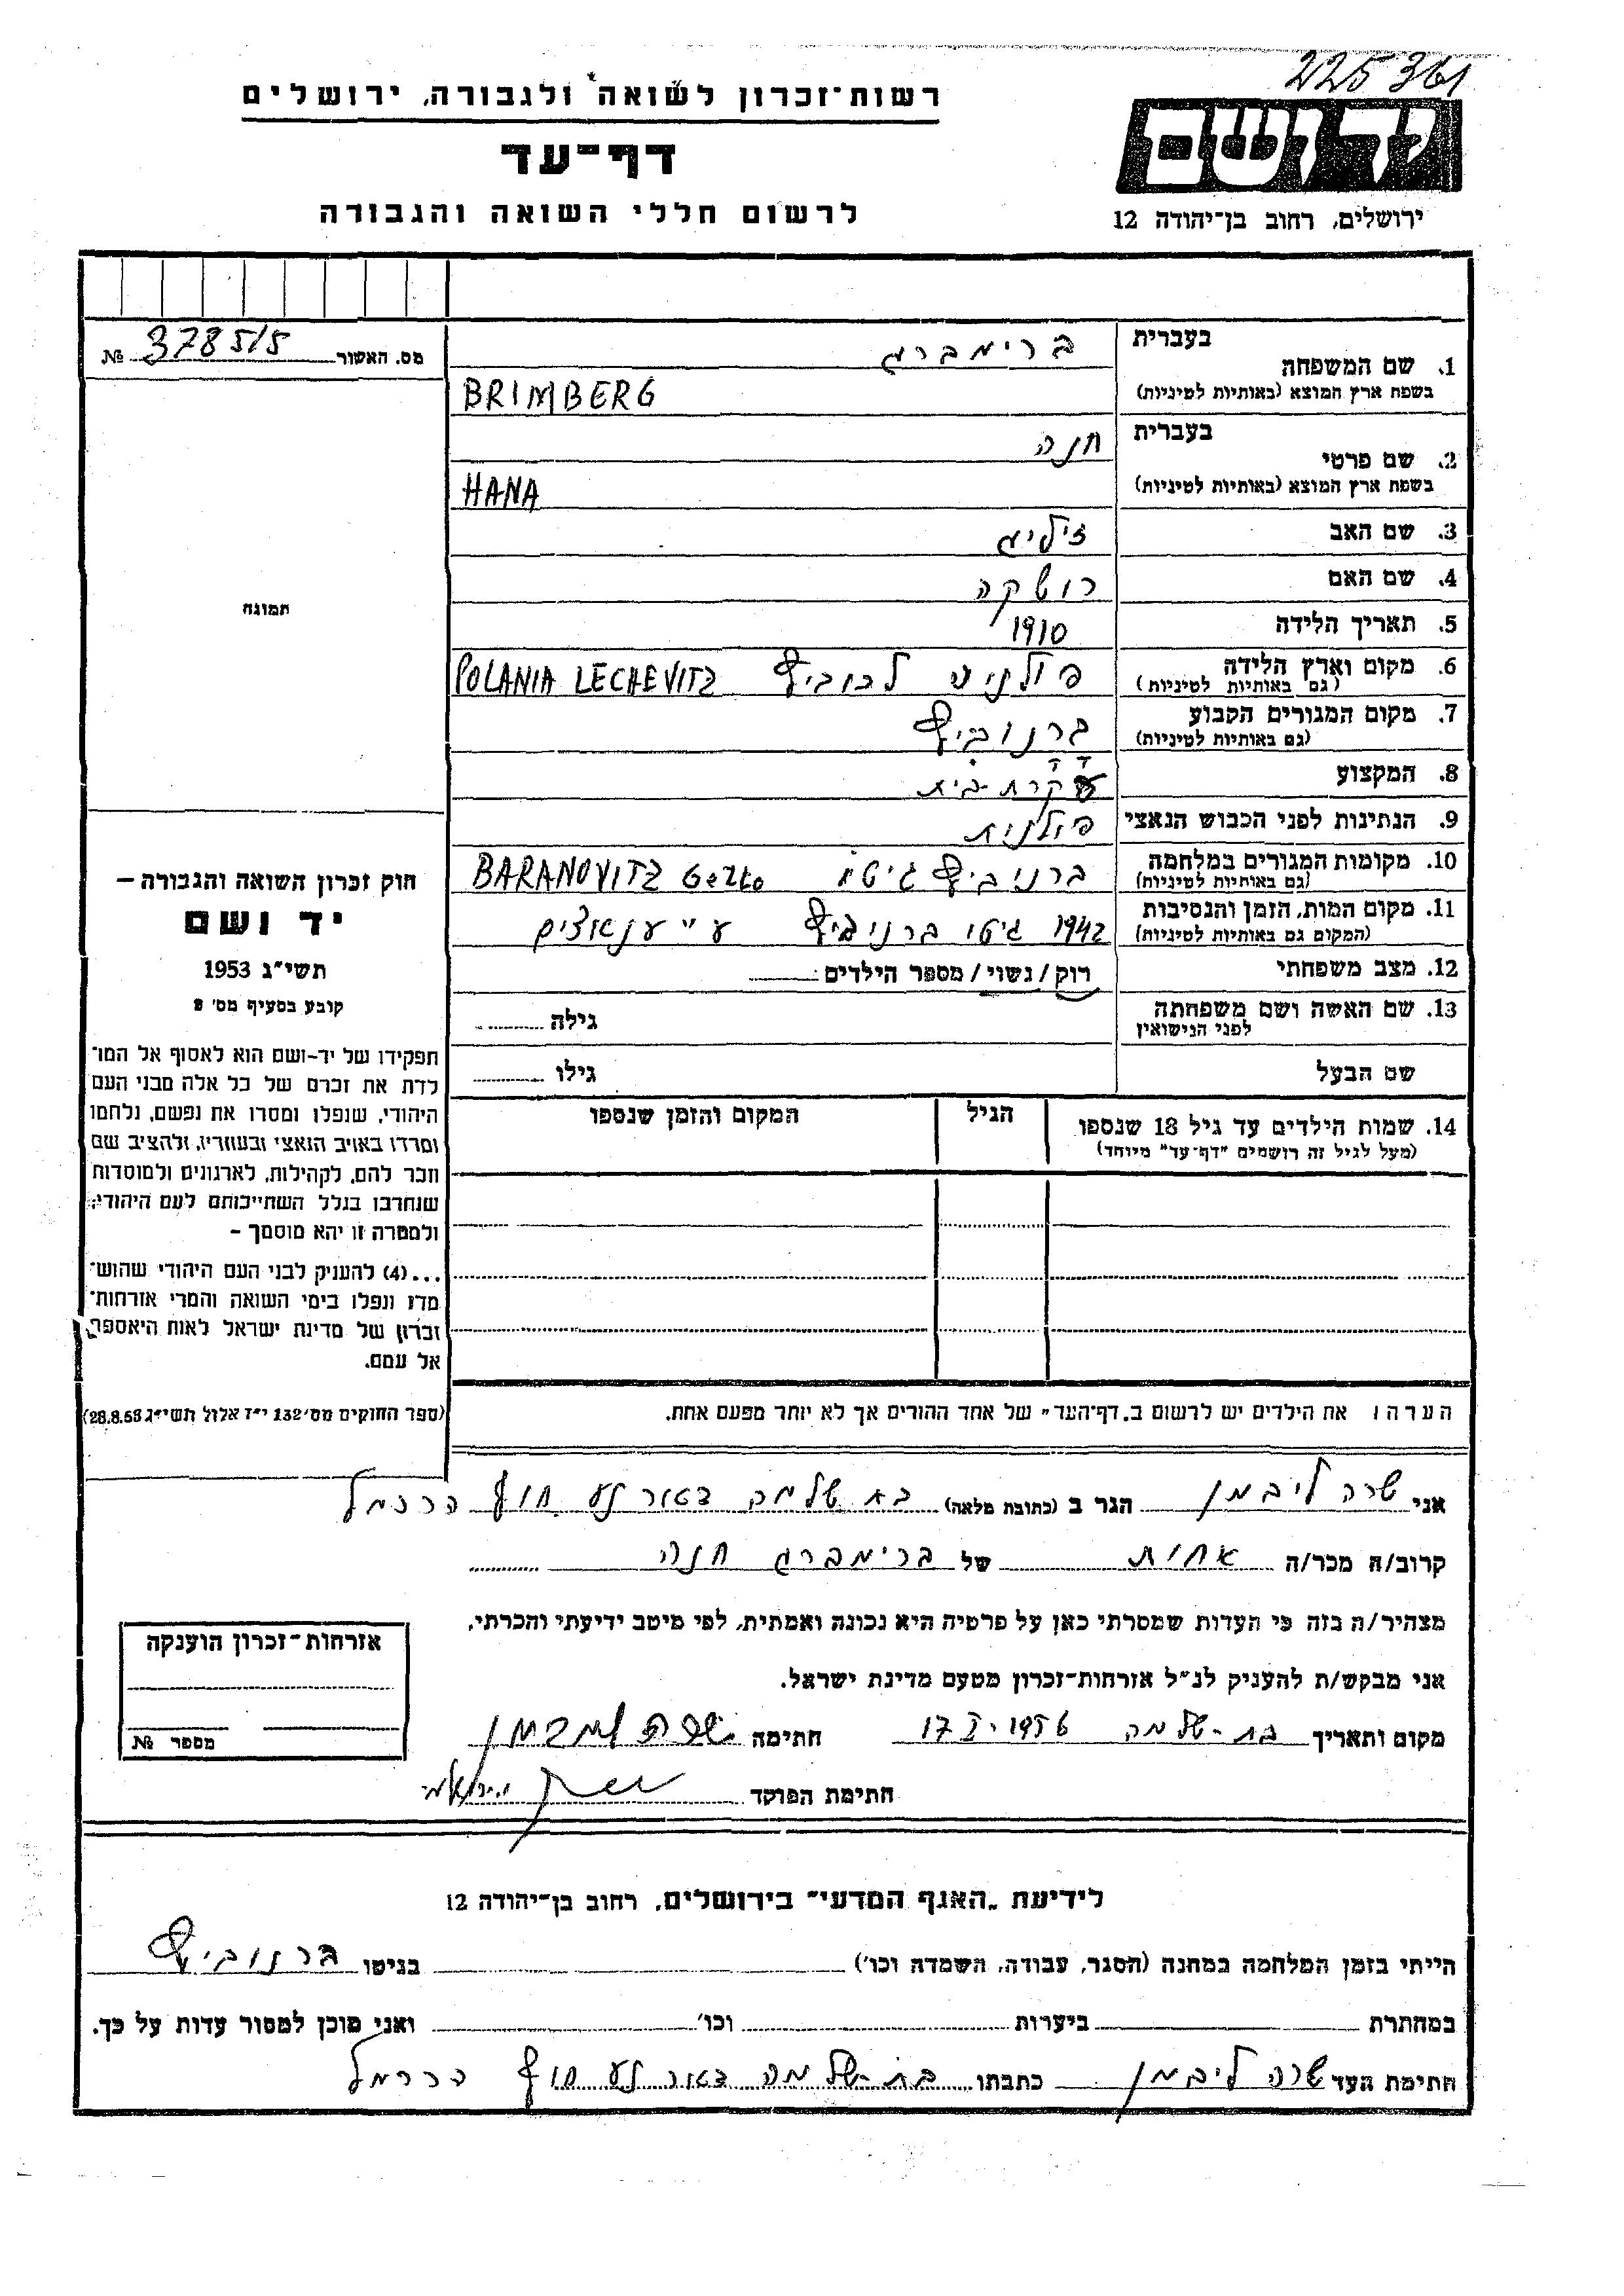 225361
רשות־זכרון לשואה ולגבורה, ירושלים
יד ושם
דף־עד
לרשום חללי השואה והגבורה
ירושלים, רחוב בן־יהודה 12
מס. האשור 3785/5 №
בעברית ברימברג
1. שם המשפחה
בשפת ארץ המוצא (באותיות לטיניות) BRIMBERG
בעברית חנה
2. שם פרטי
בשפת ארץ המוצא (באותיות לטיניות) HANA
3. שם האב זיליג
4. שם האם רושקה
5. תאריך הלידה 1910
6. מקום וארץ הלידה פולניה לכוביץ POLANIA LECHEVITZ
(גם באותיות לטיניות)
7. מקום המגורים הקבוע ברנוביץ
(גם באותיות לטיניות)
8. המקצוע עקרת-בית
9. הנתינות לפני הכבוש הנאצי פולנית
10. מקומות המגורים במלחמה ברניביץ גיטו BARANOVITZ Getto
(גם באותיות לטיניות)
11. מקום המות, הזמן והנסיבות 1942 גיטו ברניביץ ע"י
(המקום גם באותיות לטיניות)
12. מצב משפחתי רוק / נשוי / מספר הילדים
13. שם האשה ושם משפחתה גילה
לפני הנישואין
שם הבעל גילו
14. שמות הילדים עד גיל 18 שנספו הגיל המקום והזמן שנספו
(מעל לגיל זה רושמים "דף־עד" מיוחד)
תמונה
חוק זכרון השואה והגבורה –
יד ושם
תשי"ג 1953
קובע בסעיף מס' 2
תפקידו של יד-ושם הוא לאסוף אל המו־
לדת את זכרם של כל אלה מבני העם
היהודי, שנפלו ומסרו את נפשם, נלחמו
ומרדו באויב הנאצי ובעוזריו, ולהציב שם
וזכר להם, לקהילות, לארגונים ולמוסדות
שנחרבו בגלל השתייכותם לעם היהודי;
ולמטרה זו יהא מוסמך –
...(4) להעניק לבני העם היהודי שהוש־
מדו ונפלו בימי השואה והמרי אזרחות־
זכרון של מדינת ישראל לאות היאספם
אל עמם.
(ספר החוקים מס' 132 י"ז אלול תשי"ג 28.8.53)
הערה: את הילדים יש לרשום ב„דף־העד" של אחד ההורים אך לא יותר מפעם אחת.
אני שרה ליבמן הגר ב (כתובת מלאה) בת שלמה דאר נע חוף הכרמל
קרוב/ה מכר/ה אחות של ברימברג חנה
מצהיר/ה בזה כי העדות שמסרתי כאן על פרטיה היא נכונה ואמתית, לפי מיטב ידיעתי והכרתי.
אני מבקש/ת להעניק לנ"ל אזרחות־זכרון מטעם מדינת ישראל.
מקום ותאריך בת-שלמה 17 I-1956 חתימה שרה ליבמן
חתימת הפוקד
אזרחות־זכרון הוענקה
מספר №
לידיעת „האגף המדעי" בירושלים, רחוב בן־יהודה 12
הייתי בזמן המלחמה במחנה (הסגר, עבודה, השמדה וכו') בגיטו ברנוביץ
במחתרת ביערות וכו' ואני מוכן למסור עדות על כך.
חתימת העד שרה ליבמן כתבתו בת-שלמה דאר נע חוף הכרמל